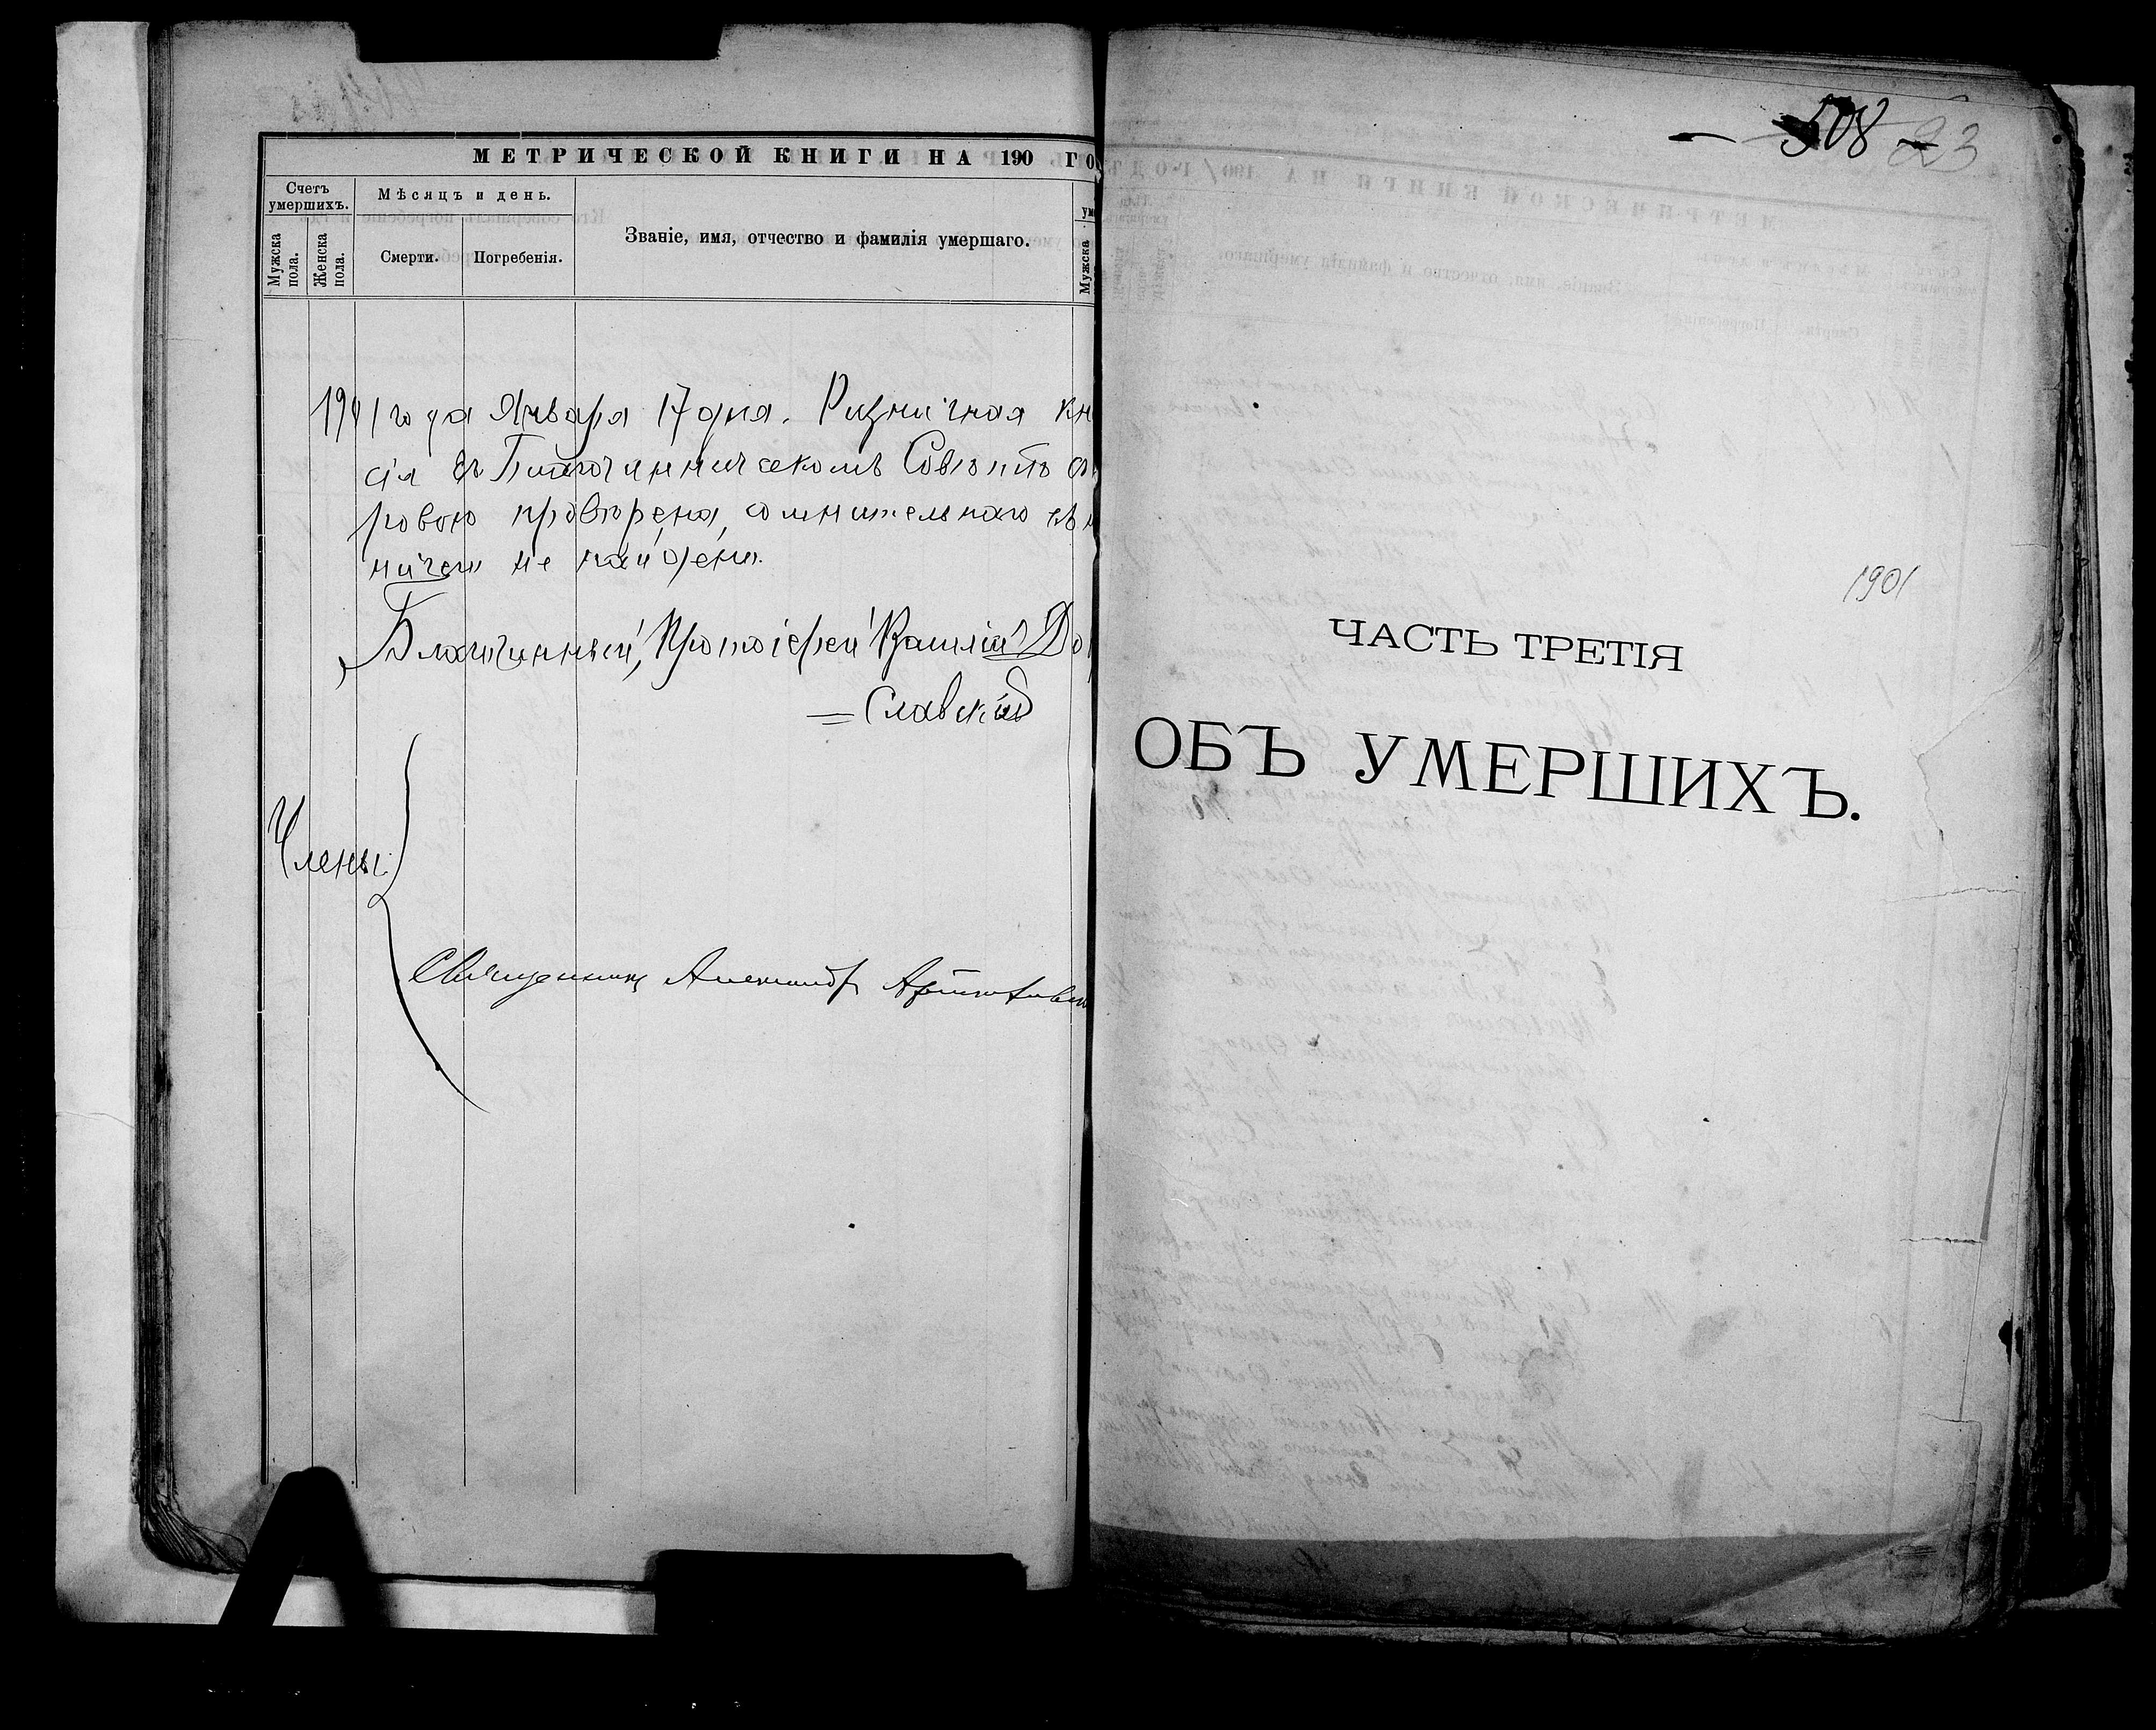 МЕТРИЧЕСКОЙ КНИГИ НА 190 ГО
Счетъ умершихъ.
Мѣсяцъ и день.
Званіе, имя, отчество и фамилія умершаго.
Мужска пола.
Женска пола.
Смерти.
Погребенія.
Мужска
1901 года Января 17 дня. Ризничная кн
сія въ Благочинническомъ Совѣтѣ
ровою провѣрена, сомнительнаго въ н
ничего не найдено.
Благочинный, Протоіерей Василій До
= Славскій
Члены:
Священникъ Александръ
508 23
1901
ЧАСТЬ ТРЕТІЯ
ОБЪ УМЕРШИХЪ.